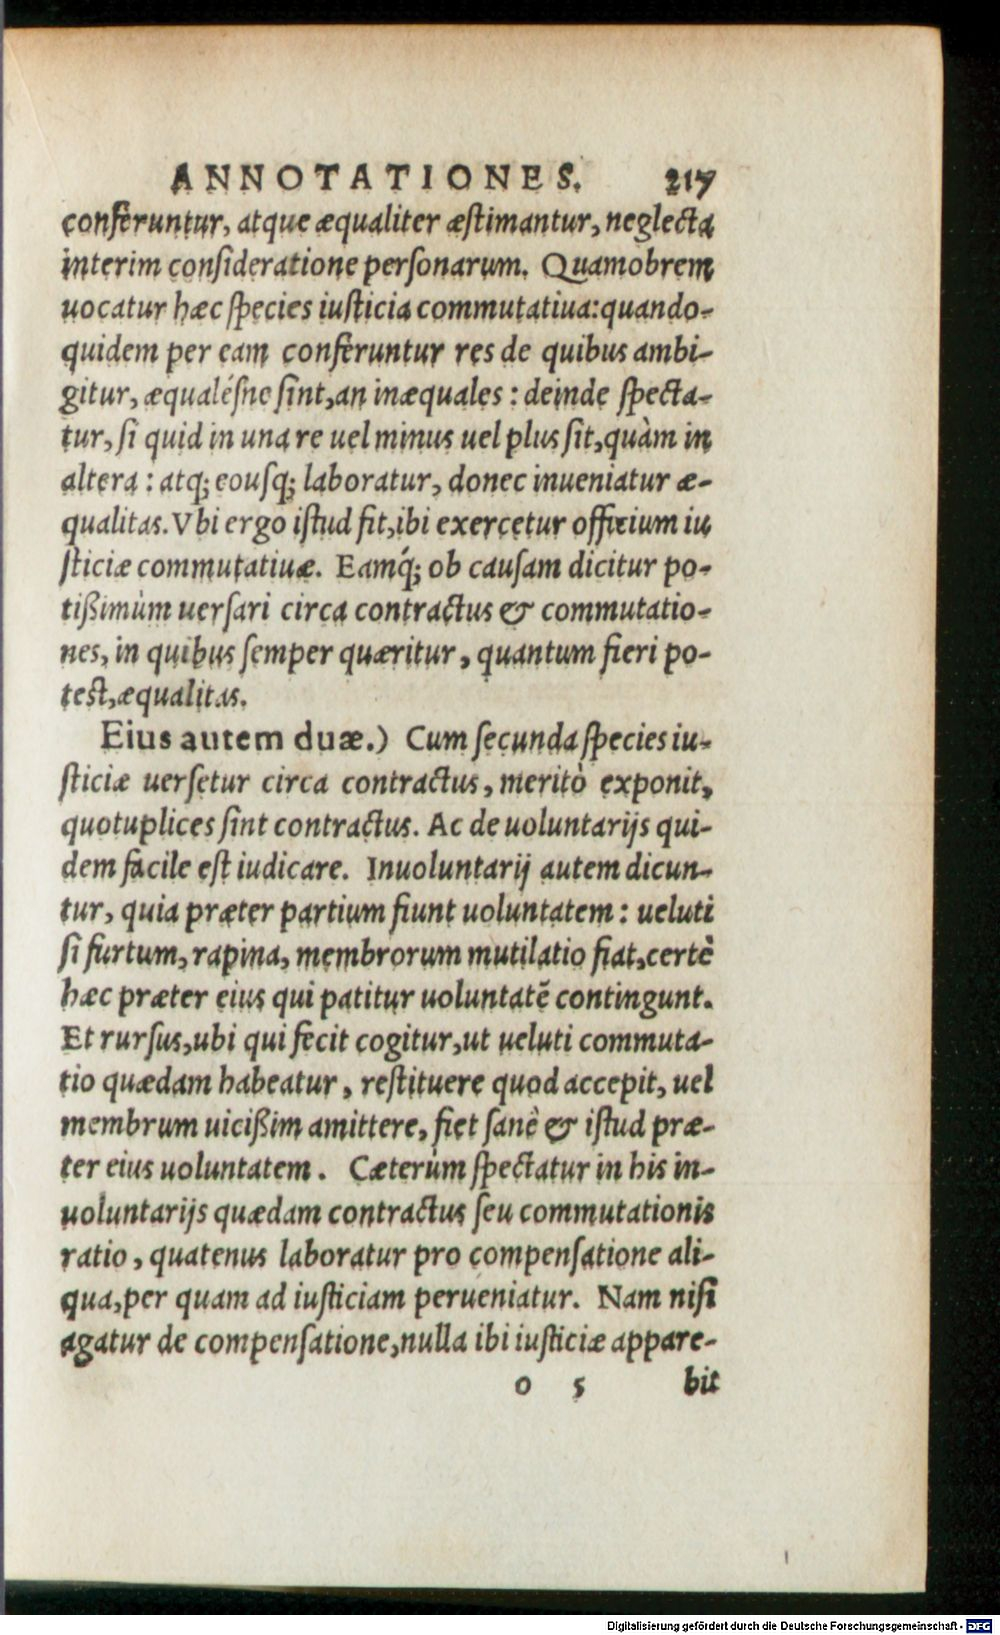 ANNOTATIONES. 217
conferuntur, atque æqualiter æstimantur, neglecta
interim consideratione personarum. Quamobrem
uocatur hæc species iusticia commutatiua: quando-
quidem per eam conferuntur res de quibus ambi-
gitur, æqualésne sint, an inæquales: deinde specta-
tur, si quid in una re uel minus uel plus sit, quàm in
altera: atq; eousq; laboratur, donec inueniatur æ-
qualitas. Vbi ergo istud fit, ibi exercetur officium iu
sticiæ commutatiuæ. Eamq́; ob causam dicitur po-
tißimùm uersari circa contractus & commutatio-
nes, in quibus semper quæritur, quantum fieri po-
test, æqualitas.
Eius autem duæ.) Cum secunda species iu-
sticiæ uersetur circa contractus, meritò exponit,
quotuplices sint contractus. Ac de uoluntarijs qui-
dem facile est iudicare. Inuoluntarij autem dicun-
tur, quia præter partium fiunt uoluntatem: ueluti
si furtum, rapina, membrorum mutilatio fiat, certè
hæc præter eius qui patitur uoluntatē contingunt.
Et rursus, ubi qui fecit cogitur, ut ueluti commuta-
tio quædam habeatur, restituere quod accepit, uel
membrum uicißim amittere, fiet sanè & istud præ-
ter eius uoluntatem. Cæterùm spectatur in his in-
uoluntarijs quædam contractus seu commutationis
ratio, quatenus laboratur pro compensatione ali-
qua, per quam ad iusticiam perueniatur. Nam nisi
agatur de compensatione, nulla ibi iusticiæ appare-
o 5 bit
Digitalisierung gefördert durch die Deutsche Forschungsgemeinschaft - DFG